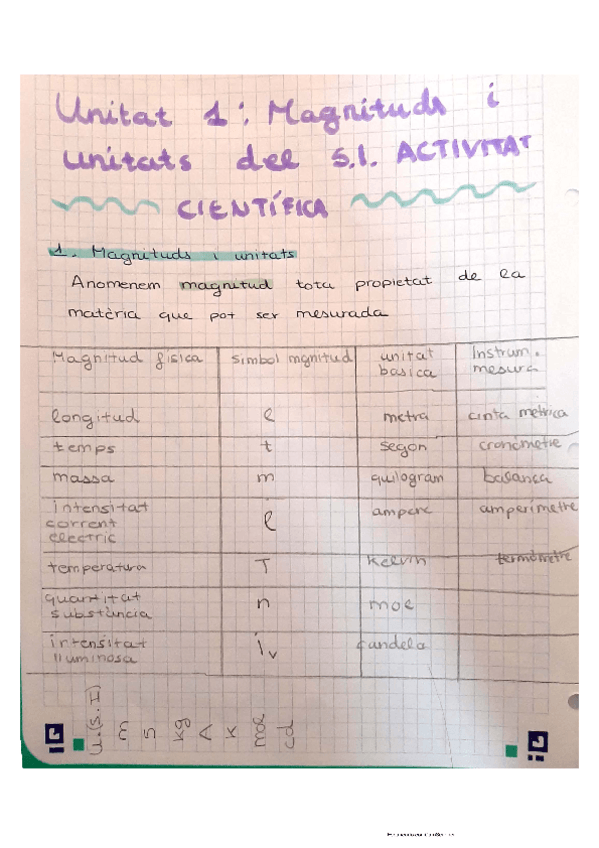 Unitat 1: Magnituds i
unitats del S.I. ACTIVITAT
CIENTÍFICA
1. Magnituds i unitats
Anomenem magnitud tota propietat de la
matèria que pot ser mesurada
Magnitud física simbol mgnitud unitat basica Instrum. mesura
longitud l metra cinta mètrica
temps t segon cronòmetre
massa m quilogram balança
intensitat corrent electric l ampere amperímetre
temperatura T kelvin termòmetre
quantitat substància n mol
intensitat lluminosa iv candela
u.(S.I)
m
s
kg
A
K
mol
cd